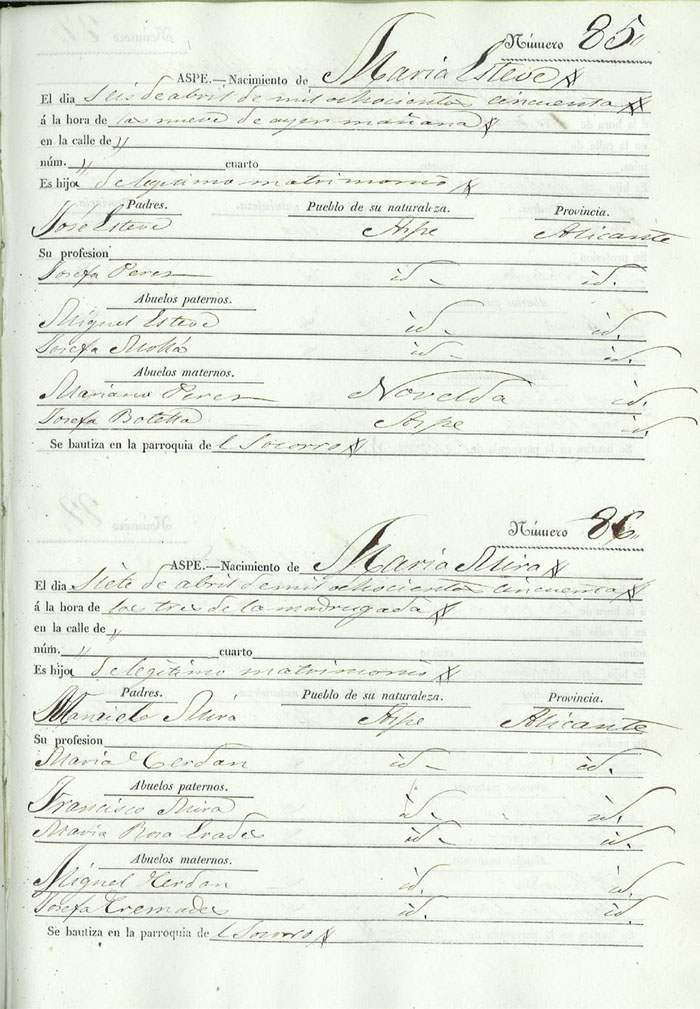 Número 85
ASPE.—Nacimiento de María Esteve
El dia seis de abril de mil ochocientos cincuenta
á la hora de las nueve de ayer mañana
en la calle de "
núm. " cuarto
Es hija de legitimo matrimonio
Padres. Pueblo de su naturaleza. Provincia.
José Esteve Aspe Alicante
Su profesion
Josefa Peres id. id.
Abuelos paternos.
Miguel Esteve id. id.
Josefa Mollá id. id.
Abuelos maternos.
Mariano Peres Novelda id.
Josefa Botella Aspe id.
Se bautiza en la parroquia del Socorro
Número 86
ASPE.—Nacimiento de María Mira
El dia siete de abril de mil ochocientos cincuenta
á la hora de las tres de la madrugada
en la calle de "
núm. " cuarto
Es hija de legitimo matrimonio
Padres. Pueblo de su naturaleza. Provincia.
Mira Aspe Alicante
Su profesion
María Cerdan id. id.
Abuelos paternos.
Francisco Mira id. id.
María Rosa Prades id. id.
Abuelos maternos.
Miguel Cerdan id. id.
Josefa Cremades id. id.
Se bautiza en la parroquia del Socorro